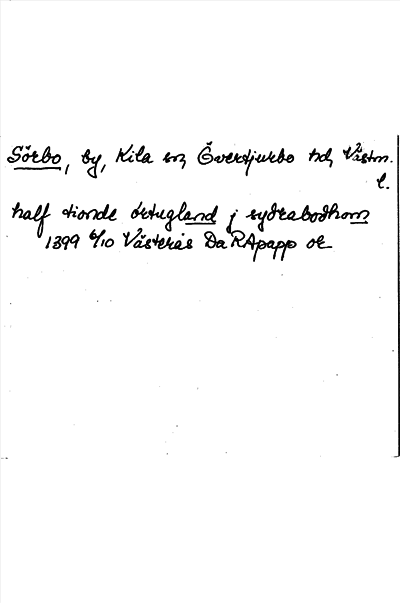 Sörbo, by, Kila sn, Övertjurbo hd, Västm.
l.
half tionde örtugland j sydrabodhom
1399 6/10 Västerås Da RApapp or